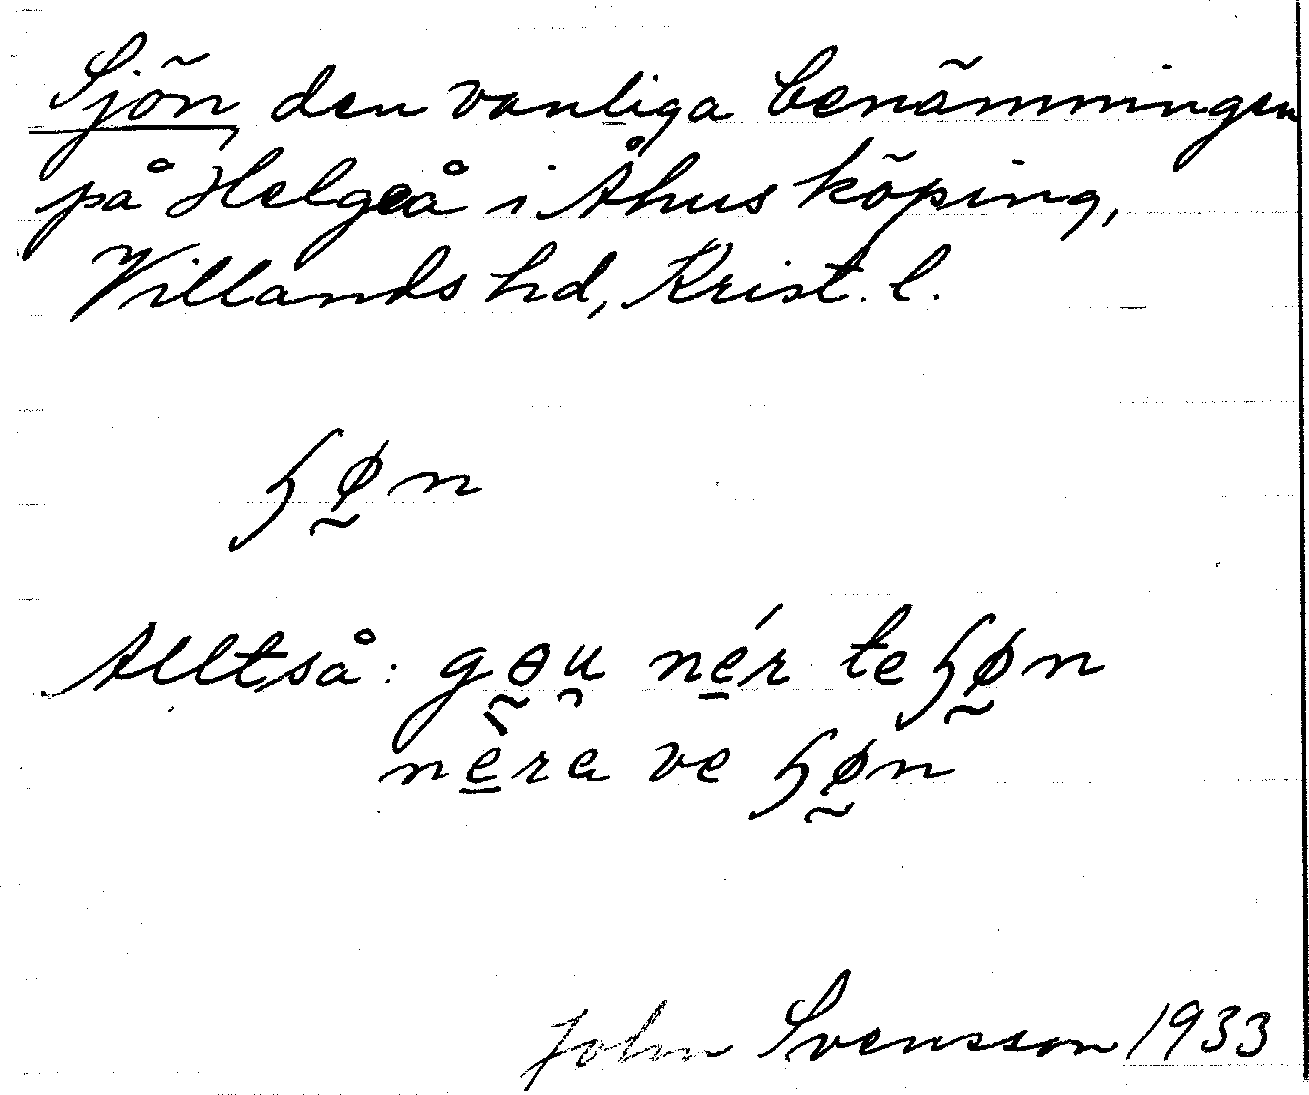 Sjön, den vanliga benämningen
på Helgeå i Åhus köping,
Villands hd, Krist. l.
ɧø̰n
Alltså: gɵ̰u̯ nḛ́r te ɧø̰n
nèra ve ɧø̰n
John Svensson 1933